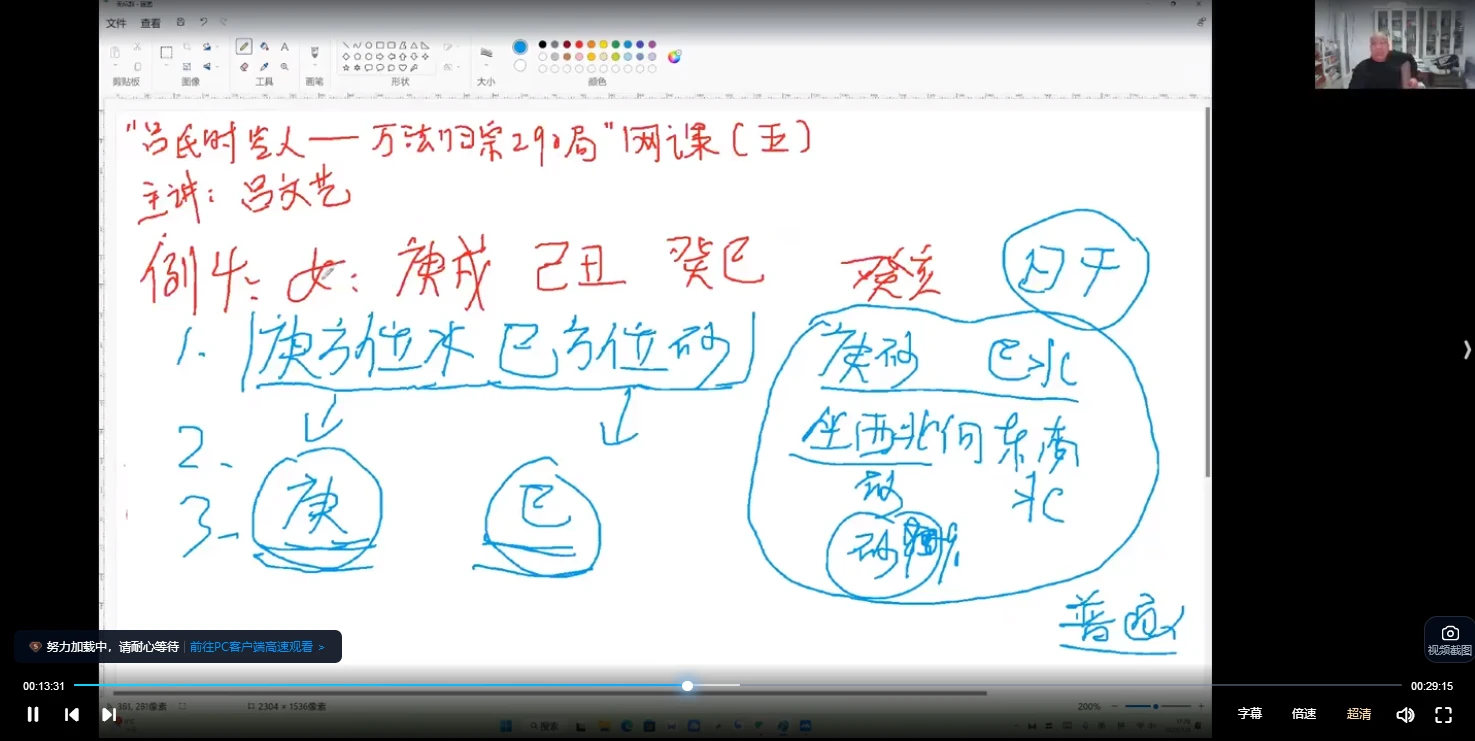 文件 查看
剪贴板 图像 工具 画笔 形状 大小 颜色
"吕氏时空人——万法归宗290局"网课(五)
主讲：吕文艺
例4：女：庚戌 己丑 癸巳 癸亥
日干
1. 庚方位水 巳方位砂
庚砂 巳水
2.
坐西北向东南
水
3. 庚 巳
砂
普通人
努力加载中，请耐心等待 | 前往PC客户端高速观看 >
视频截图
00:13:31
00:29:15
2304 × 1536像素
200%
搜索
字幕 倍速 超清